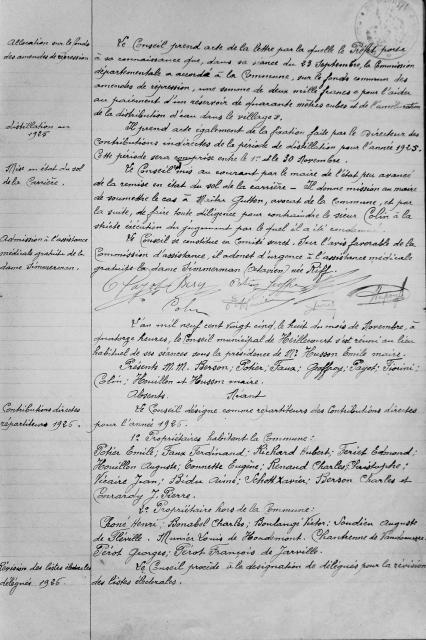 Allocation sur le fonds
des amendes de répression
Le Conseil prend acte de la lettre par laquelle le Préfet porte
à sa connaissance que, dans sa séance du 23 Septembre, la Commission
départementale a accordé à la Commune, sur le fonds commun des
amendes de répression, une somme de deux mille francs pour l'aider
au paiement d'un réservoir de quarante mètres cubes et de l'amélioration
de la distribution d'eau dans le village.
distillation en
1925
Il prend acte également de la fixation faite par le Directeur des
Contributions indirectes de la période de distillation pour l'année 1925.
Cette période sera comprise entre le 1er et le 30 Novembre.
Mise en état du sol
de la Carrière.
Le Conseil mis au courant par le maire de l'état peu avancé
de la remise en état du sol de la carrière - Il donne mission au maire
de soumettre le cas à Maître Gutton, avocat de la Commune, et par
la suite, de faire toute diligence pour contraindre le sieur Colin à la
stricte exécution du jugement par quel il a été condamné.
Admission à l'assistance
médicale gratuite de la
dame Zimmerman.
Le Conseil se constitue en Comité secret. Sur l'avis favorable de la
Commission d'assistance, il admet d'urgence à l'assistance médicale
gratuite la dame Zimmerman née Riff
Colin
L'an mil neuf cent vingt cinq, le huit du mois de Novembre, à
quatorze heures, le Conseil municipal de Heillecourt s'est réuni au lieu
habituel de ses séances sous la présidence de Mr Husson Emile maire.
Présents M.M. Berson; Potier, Faux; Geoffroy; Payot;
Colin; Houillon et Husson maire.
Absents. Néant
Contributions directes
répartiteurs 1926.
Le Conseil désigne comme répartiteurs des Contributions directes
pour l'année 1926.
1° Propriétaires habitant la Commune:
Potier Emile; Faux Ferdinand; Richard Hubert; Feriet Edmond;
Houillon Auguste; Connette Eugène; Renaud Charles, Christophe;
Vicaire Jean; Bidu Aimé; Schott Xavier; Berson Charles et
J. Pierre.
2° Propriétaire hors de la Commune:
Henri; Bonabel Charles; Boulangé Victor; Auguste
de Fléville. Munier Louis de Houdemont. de Vandoeuvre.
Pérot Georges; Pérot François de Jarville.
Révision des listes électorales
délégués 1926.
Le Conseil procède à la désignation de délégués pour la révision
des listes électorales.